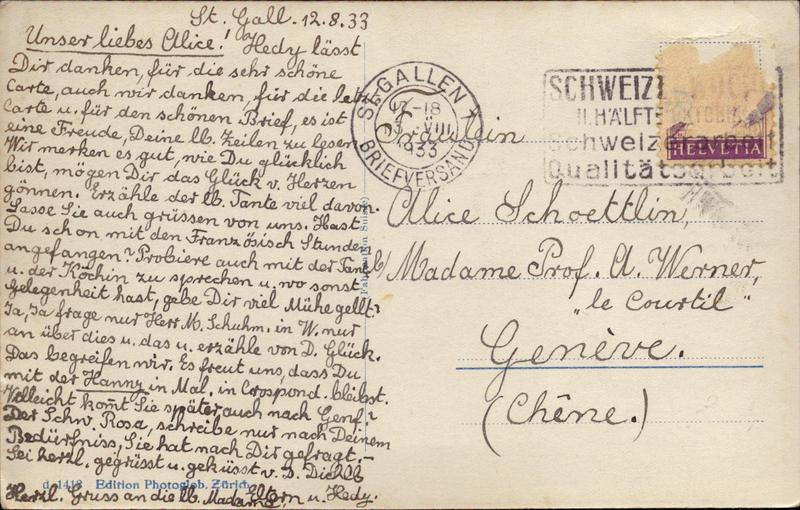 St. Gall. 12.8.33
Unser liebes Alice! Hedy lässt
Dir danken, für die sehr schöne
Carte, auch wir danken, für die letz.
Carte u. für den schönen Brief, es ist
eine Freude, Deine lb. Zeilen zu lesen
Wir merken es gut, wie Du glücklich
bist, mögen Dir das Glück v. Herzen
gönnen. Erzähle der lb. Tante viel davon.
Lasse Sie auch grüssen von uns. Hast
Du schon mit den Französisch Stunden
angefangen? Probiere auch mit der Tante
u. der Köchin zu sprechen u. wo sonst
Gelegenheit hast, gebe Dir viel Mühe gellt?
Ja, Ja frage nur Herr M. Schuhm. in W. nur
an über dies u. das u. erzähle von D. Glück.
Das begreifen wir. Es freut uns, dass Du
mit der Hanny in Mal. in Crospond. bleibst.
Villeicht komt Sie später auch nach Genf?
Der Schw. Rosa, schreibe nur nach Deinem
Bedürfniss, Sie hat nach Dir gefragt.-
Sei herzl. gegrüsst u. geküsst v. D. Dich lb
Eltern u. Hedy.
Herzl. Gruss an die lb. Madame.
d 1413 Edition Photoglob. Zürich
ST. GALLEN 1
17-18
VIII
1933
BRIEFVERSAND
SCHWEIZER WOCHE
II. HÄLFTE OKTOBER
Schweizerarbeit
Qualitätsarbeit
HELVETIA
Alice Schoettlin,
b/ Madame Prof. A. Werner,
"le Courtil"
Genève.
(Chêne.)